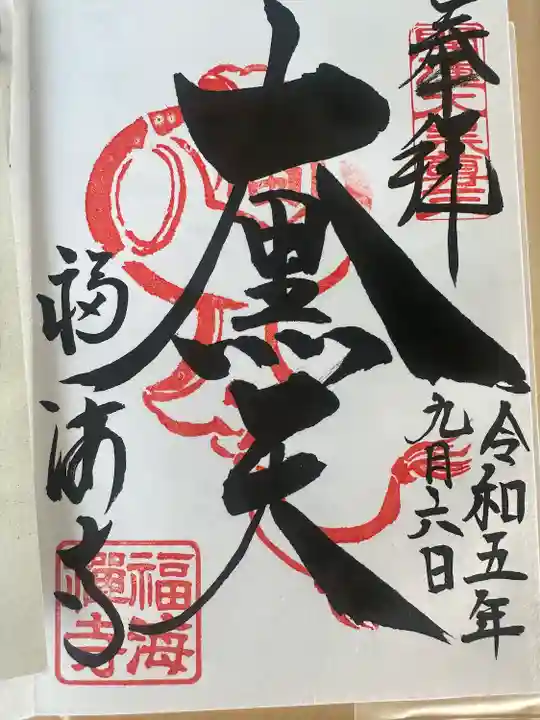 奉拝
大黒天
令和五年
九月六日
福海寺
福海
禅寺